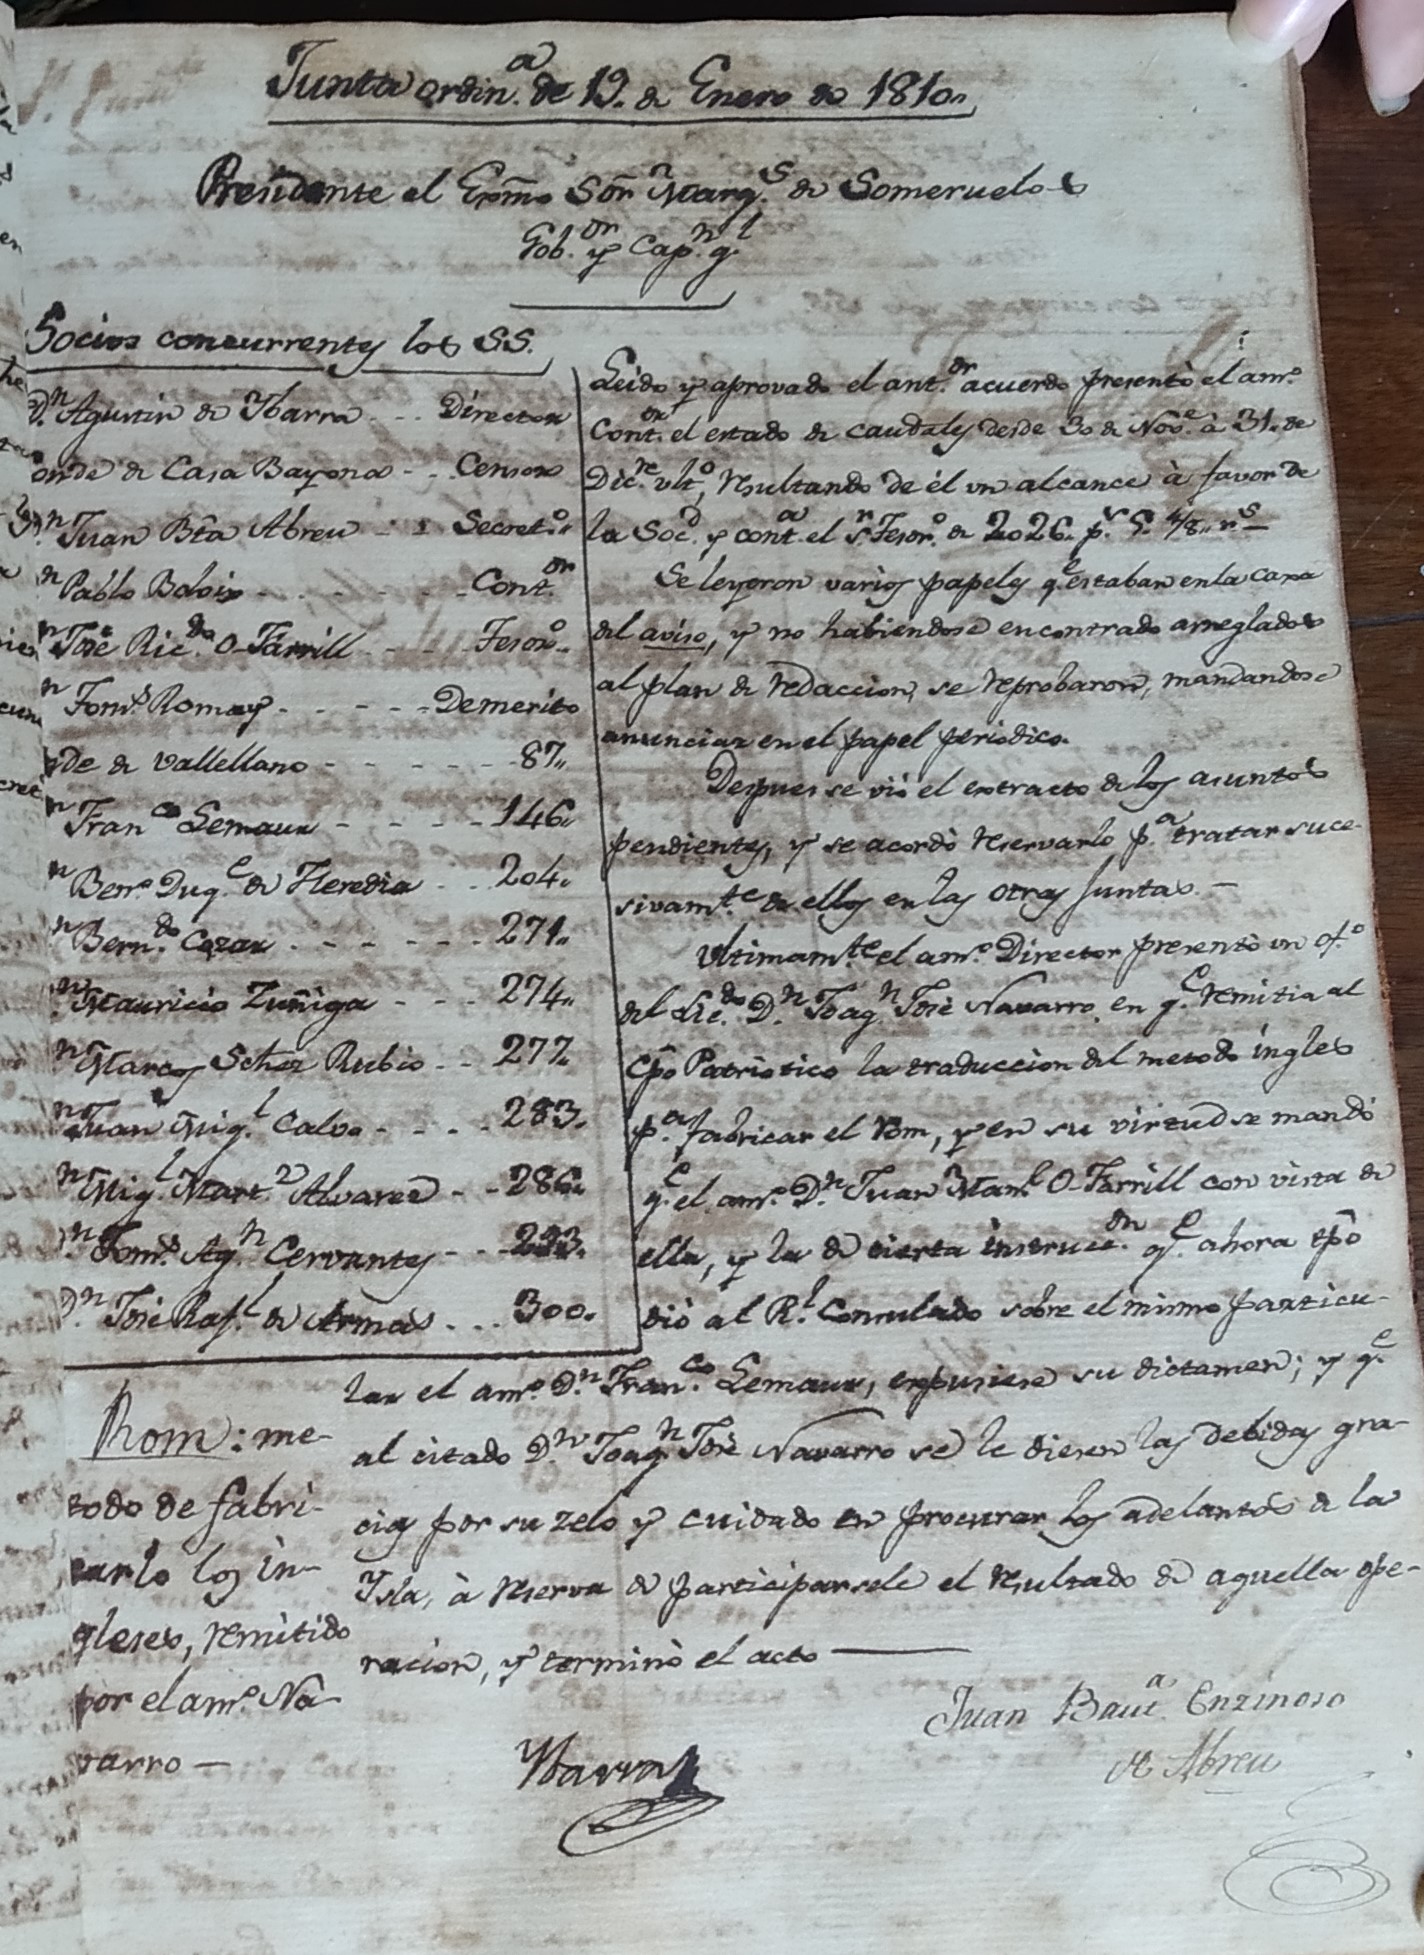 Junta ordin.ª de 19. de Enero de 1810.
Presidente el Exmo Sõr Marq.s de Someruelos
Gob.or y Cap.n g.l
Socios concurrentes los SS.
D.n Agustin de Ybarra - - - Director
onde de Casa Bayona - - - Censor
n Juan Bta Abreu - - Secret.o
n Pablo Boloix - - - - - - - Cont.or
n José Ric.do O-Farrill - - - - Tesor.o
n Tom.s Romay - - - - - - Demerito
de de Vallellano - - - - - - - 87.
n Fran.co Lemaur - - - - - 146.
n Bern.o Duq.e de Heredia - - - 204.
n Bern.do Cozar - - - - - - 271.
n Mauricio Zuñiga - - - - 274.
n Marcos Schez Rubio - - - 277.
n Juan Mig.l Calvo - - - - 283.
n Mig.l Mart.z Alvarez - - - 286.
n Tom.s Ag.n Cervantes - - - 293.
D.n José Raf.l de Armas - - - 300.
Leido y aprovado el ant.or acuerdo presentò el am.o
Cont.or el estado de caudales desde 30 de Nov.e à 31. de
Dic.re ult.o, resultando de él un alcance à favor de
la Soc.d y cont.a el s.r Tesor.o de 2026. p.s 5. 4/8.. r.s
Se leyeron varios papeles q.e estaban en la caxa
del aviso, y no habiendose encontrado arreglados
al plan de redaccion, se reprobaron, mandandose
anunciar en el papel periodico.
Despues se viò el extracto de los asuntos
pendientes, y se acordò reservarlo p.a tratar suce-
sivam.te de ellos en las otras Juntas. -
Ultimam.te el am.o Director presentò un of.o
del Lic.do D.n Joaq.n José Navarro en q.e remitia al
Cpo Patriotico la traduccion del metodo ingles
p.a fabricar el Rom, y en su virtud se mandò
q.e el am.o D.n Juan Man.l O-Farrill con vista de
ella, y la de cierta instrucc.on q.e ahora tpõ
diò al R.l Consulado sobre el mismo particu-
lar el am.o D.n Fran.co Lemaur, expusiese su dictamen; y q.e
al citado D.n Joaq.n José Navarro se le diesen las debidas gra-
cias por su zelo y cuidado en procurar los adelantos de la
Ysla, à reserva de participarsele el resultado de aquella ope-
racion, y terminò el acto ———
Rom: me-
todo de fabri-
carlo los in-
gleses, remitido
por el am.o Na-
varro —
Ybarra
Juan Baut.a Enzinoso
de Abreu